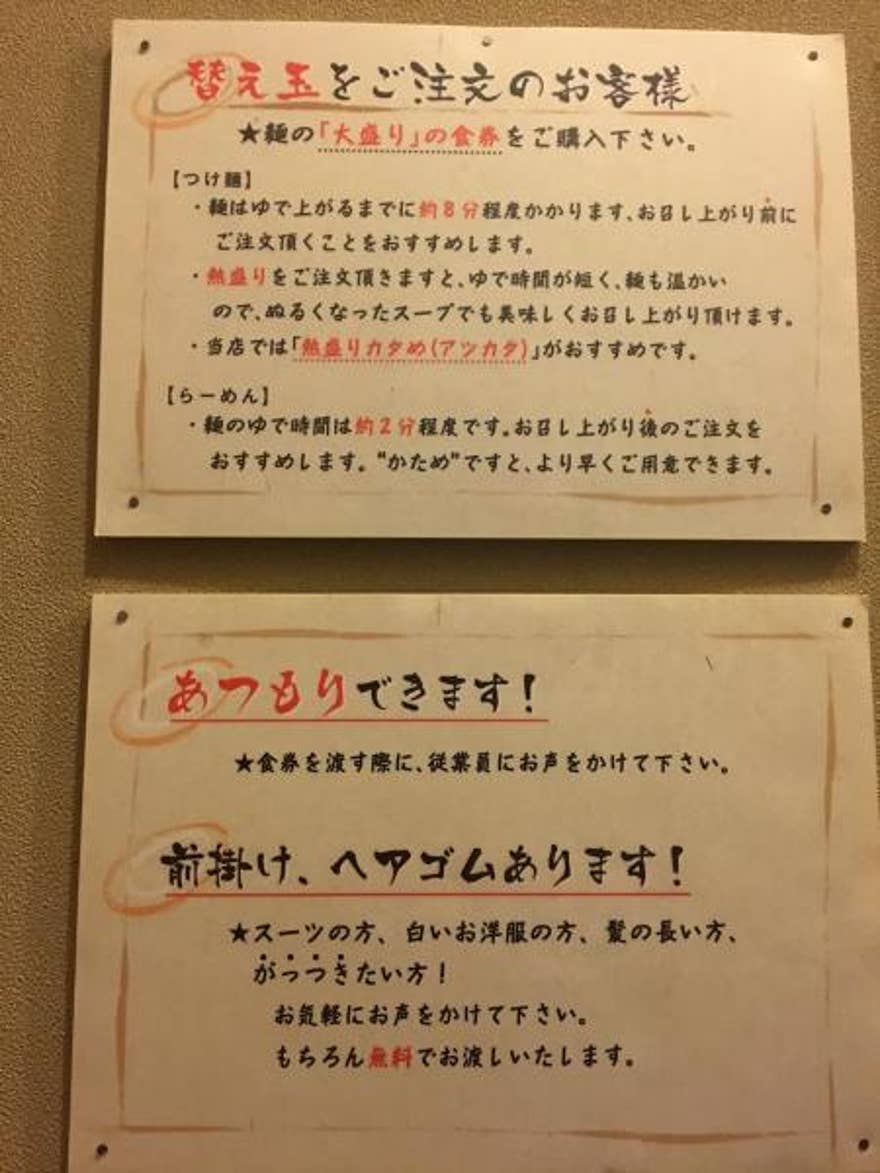 替え玉をご注文のお客様
★麺の「大盛り」の食券をご購入下さい。
【つけ麺】
・麺はゆで上がるまでに約8分程度かかります、お召し上がり前に
ご注文頂くことをおすすめします。
・熱盛りをご注文頂きますと、ゆで時間が短く、麺も温かい
ので、ぬるくなったスープでも美味しくお召し上がり頂けます。
・当店では「熱盛りカタめ(アツカタ)」がおすすめです。
【らーめん】
・麺のゆで時間は約2分程度です。お召し上がり後のご注文を
おすすめします。"かため"ですと、より早くご用意できます。
あつもりできます！
★食券を渡す際に、従業員にお声をかけて下さい。
前掛け、ヘアゴムあります！
★スーツの方、白いお洋服の方、髪の長い方、
がっつきたい方！
お気軽にお声をかけて下さい。
もちろん無料でお渡しいたします。